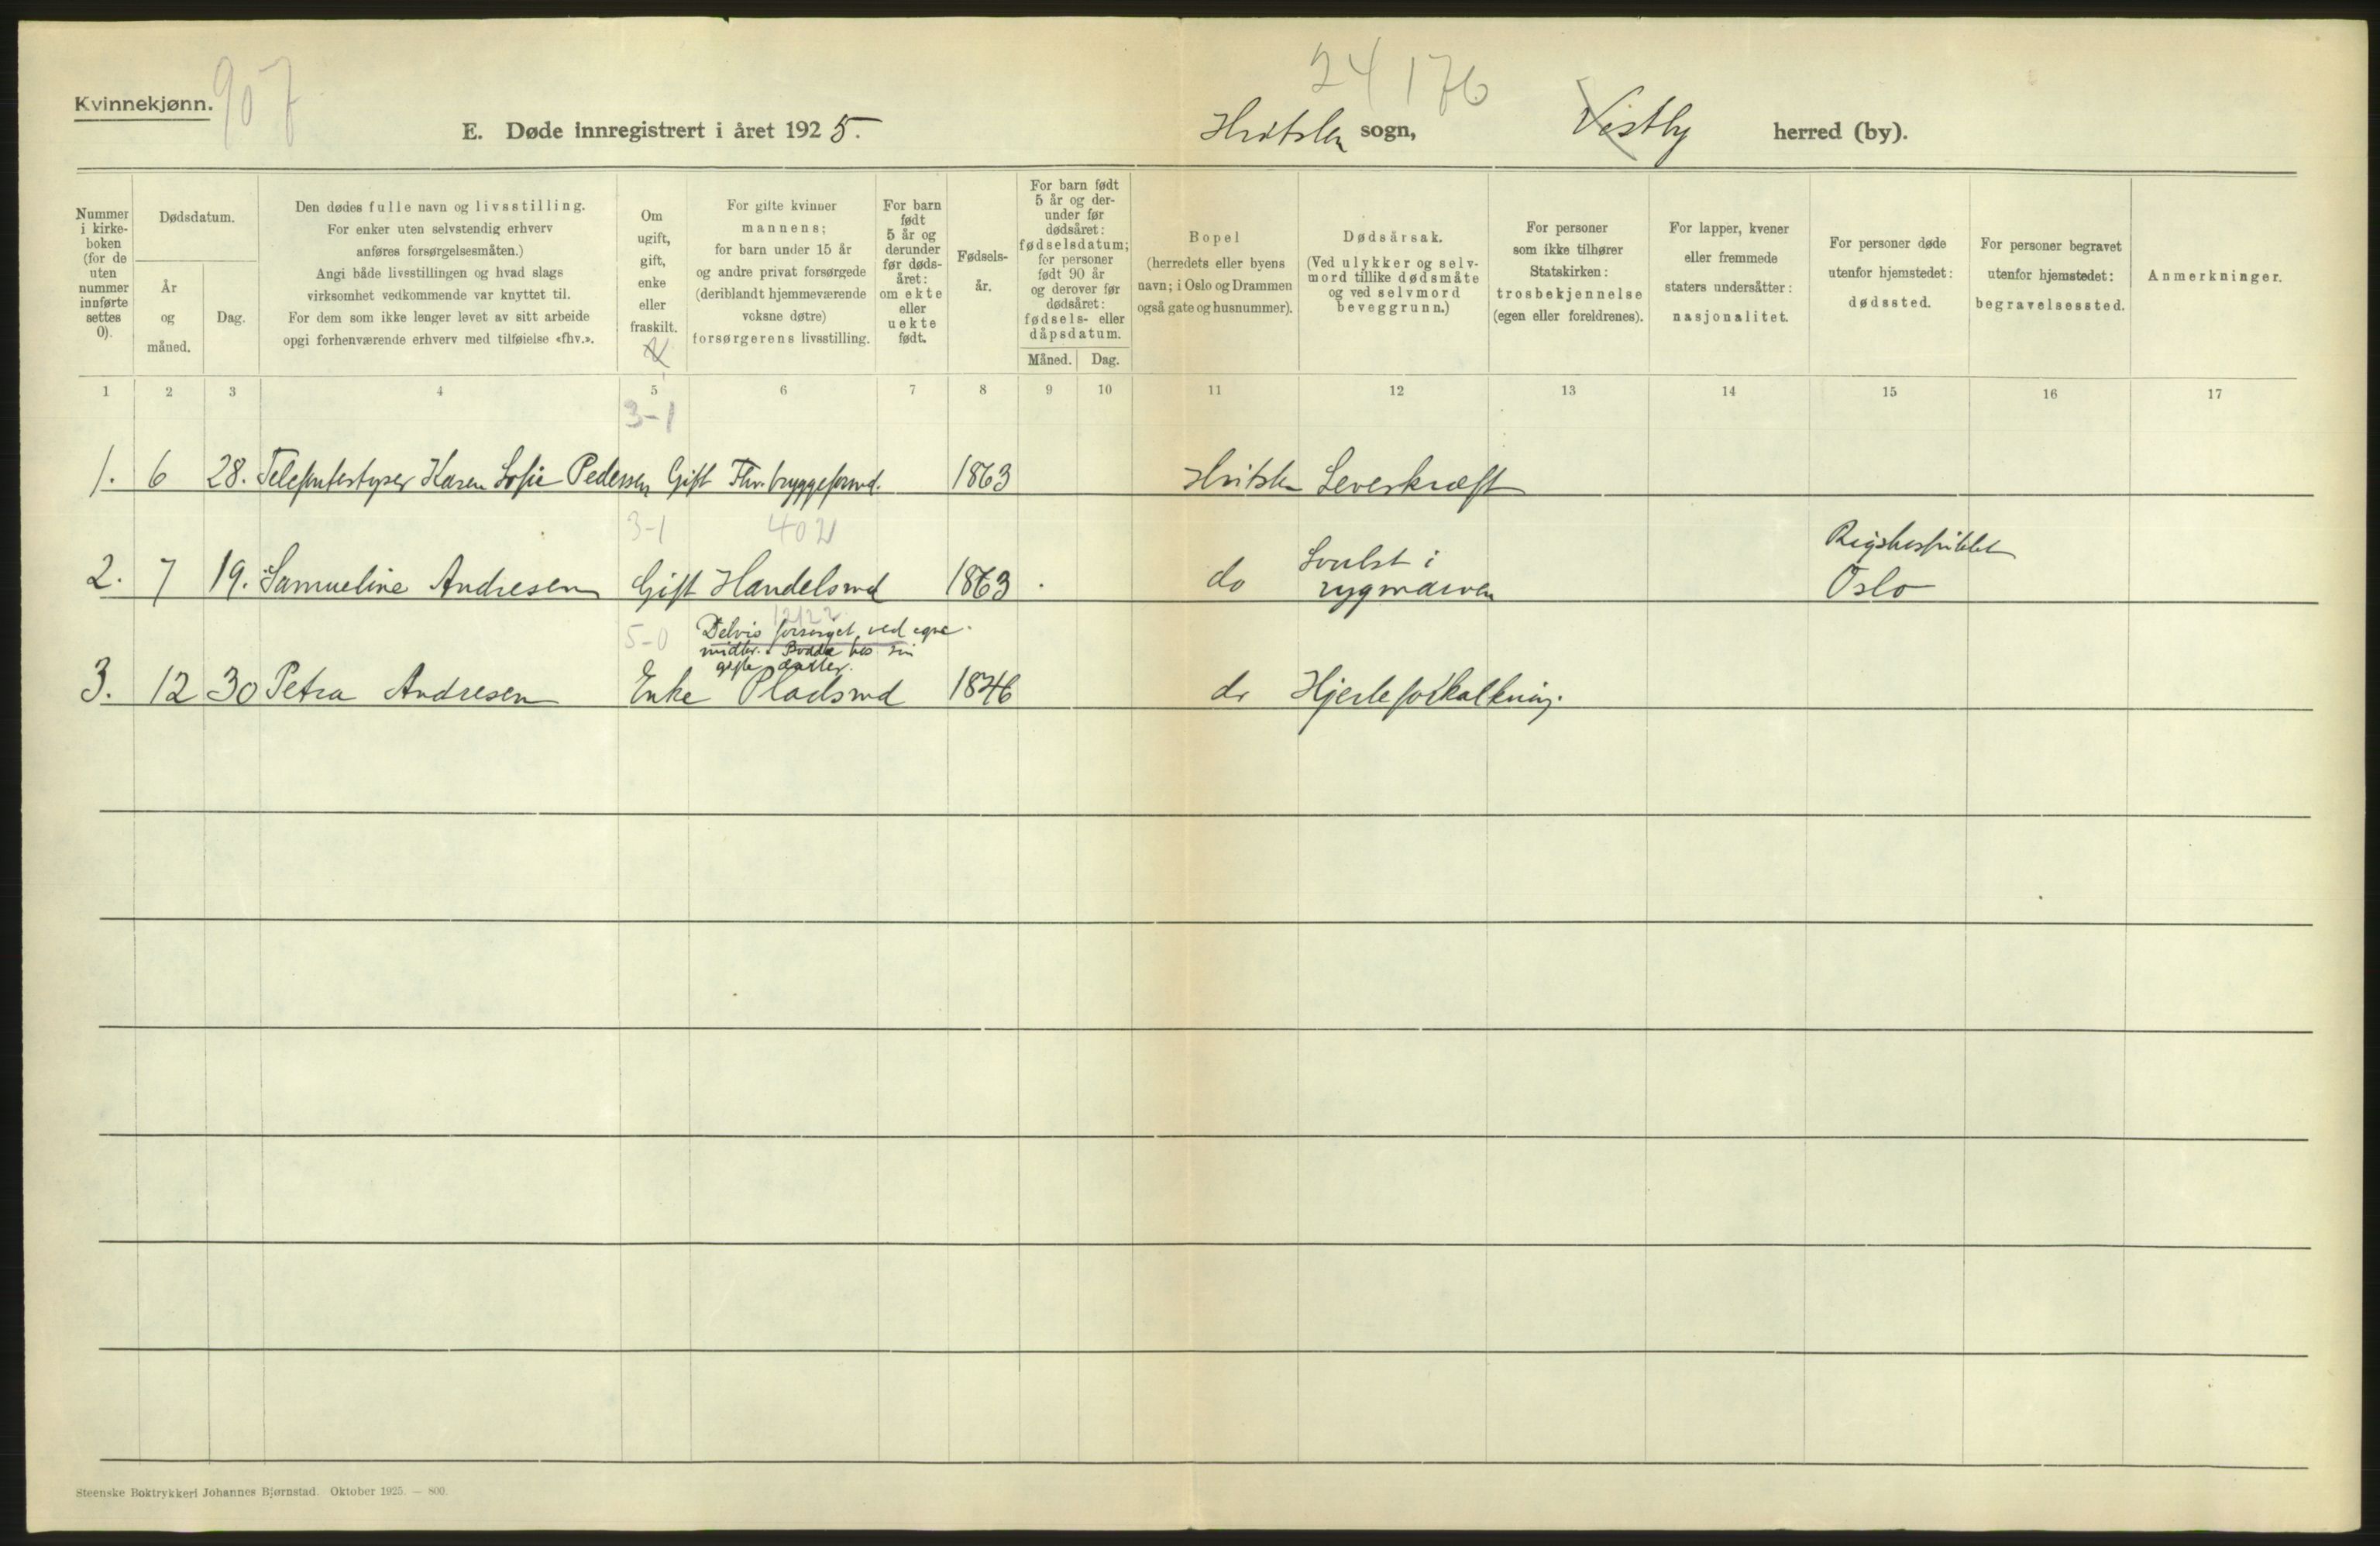 Kvinnekjønn.
907
24 176
E. Døde innregistrert i året 1925.
Hvitsten sogn, Vestby herred (by).
Nummer i kirke-boken (for de uten nummer innførte settes 0).
Dødsdatum.
År og måned.
Dag.
Den dødes fulle navn og livsstilling.
For enker uten selvstendig erhverv
anføres forsørgelsesmåten.)
Angi både livsstillingen og hvad slags
virksomhet vedkommende var knyttet til.
For dem som ikke lenger levet av sitt arbeide
opgi forhenværende erhverv med tilføielse «fhv.».
Om ugift, gift, enke eller fraskilt.
For gifte kvinner
mannens;
for barn under 15 år
og andre privat forsørgede
(deriblandt hjemmeværende
voksne døtre)
forsørgerens livsstilling.
For barn født 5 år og derunder før døds-året: om ekte eller uekte født.
Fødsels-år.
For barn født 5 år og der-under før dødsåret: fødselsdatum; for personer født 90 år og derover før dødsåret: fødsels- eller dåpsdatum.
Måned. Dag.
Bopel
(herredets eller byens
navn; i Oslo og Drammen
også gate og husnummer).
Dødsårsak.
(Ved ulykker og selv-
mord tillike dødsmåte
og ved selvmord
beveggrunn.)
For personer
som ikke tilhører
Statskirken:
trosbekjennelse
(egen eller foreldrenes).
For lapper, kvener
eller fremmede
staters undersåtter:
nasjonalitet.
For personer døde
utenfor hjemstedet:
dødssted.
For personer begravet
utenfor hjemstedet:
begravelsessted.
Anmerkninger.
1 2 3 4 5 6 7 8 9 10 11 12 13 14 15 16 17
3-1
1. 6 28. Telefonbestyrer Karen Sofie Pedersen Gift Fhv. bryggeformd. 1863 Hvitsten Leverkræft
3-1 402
2. 7 19. Samueline Andresen Gift Handelsmd 1863 do Svulst i rygmarven Rigshospitalet Oslo
5-0 12122
Delvis forsørget ved egne
midler. Bodde hos sin
gifte datter.
3. 12 30 Petra Andresen Enke Pladsmd 1846 do Hjerteforkalkning.
Steenske Boktrykkeri Johannes Bjørnstad. Oktober 1925. — 800.